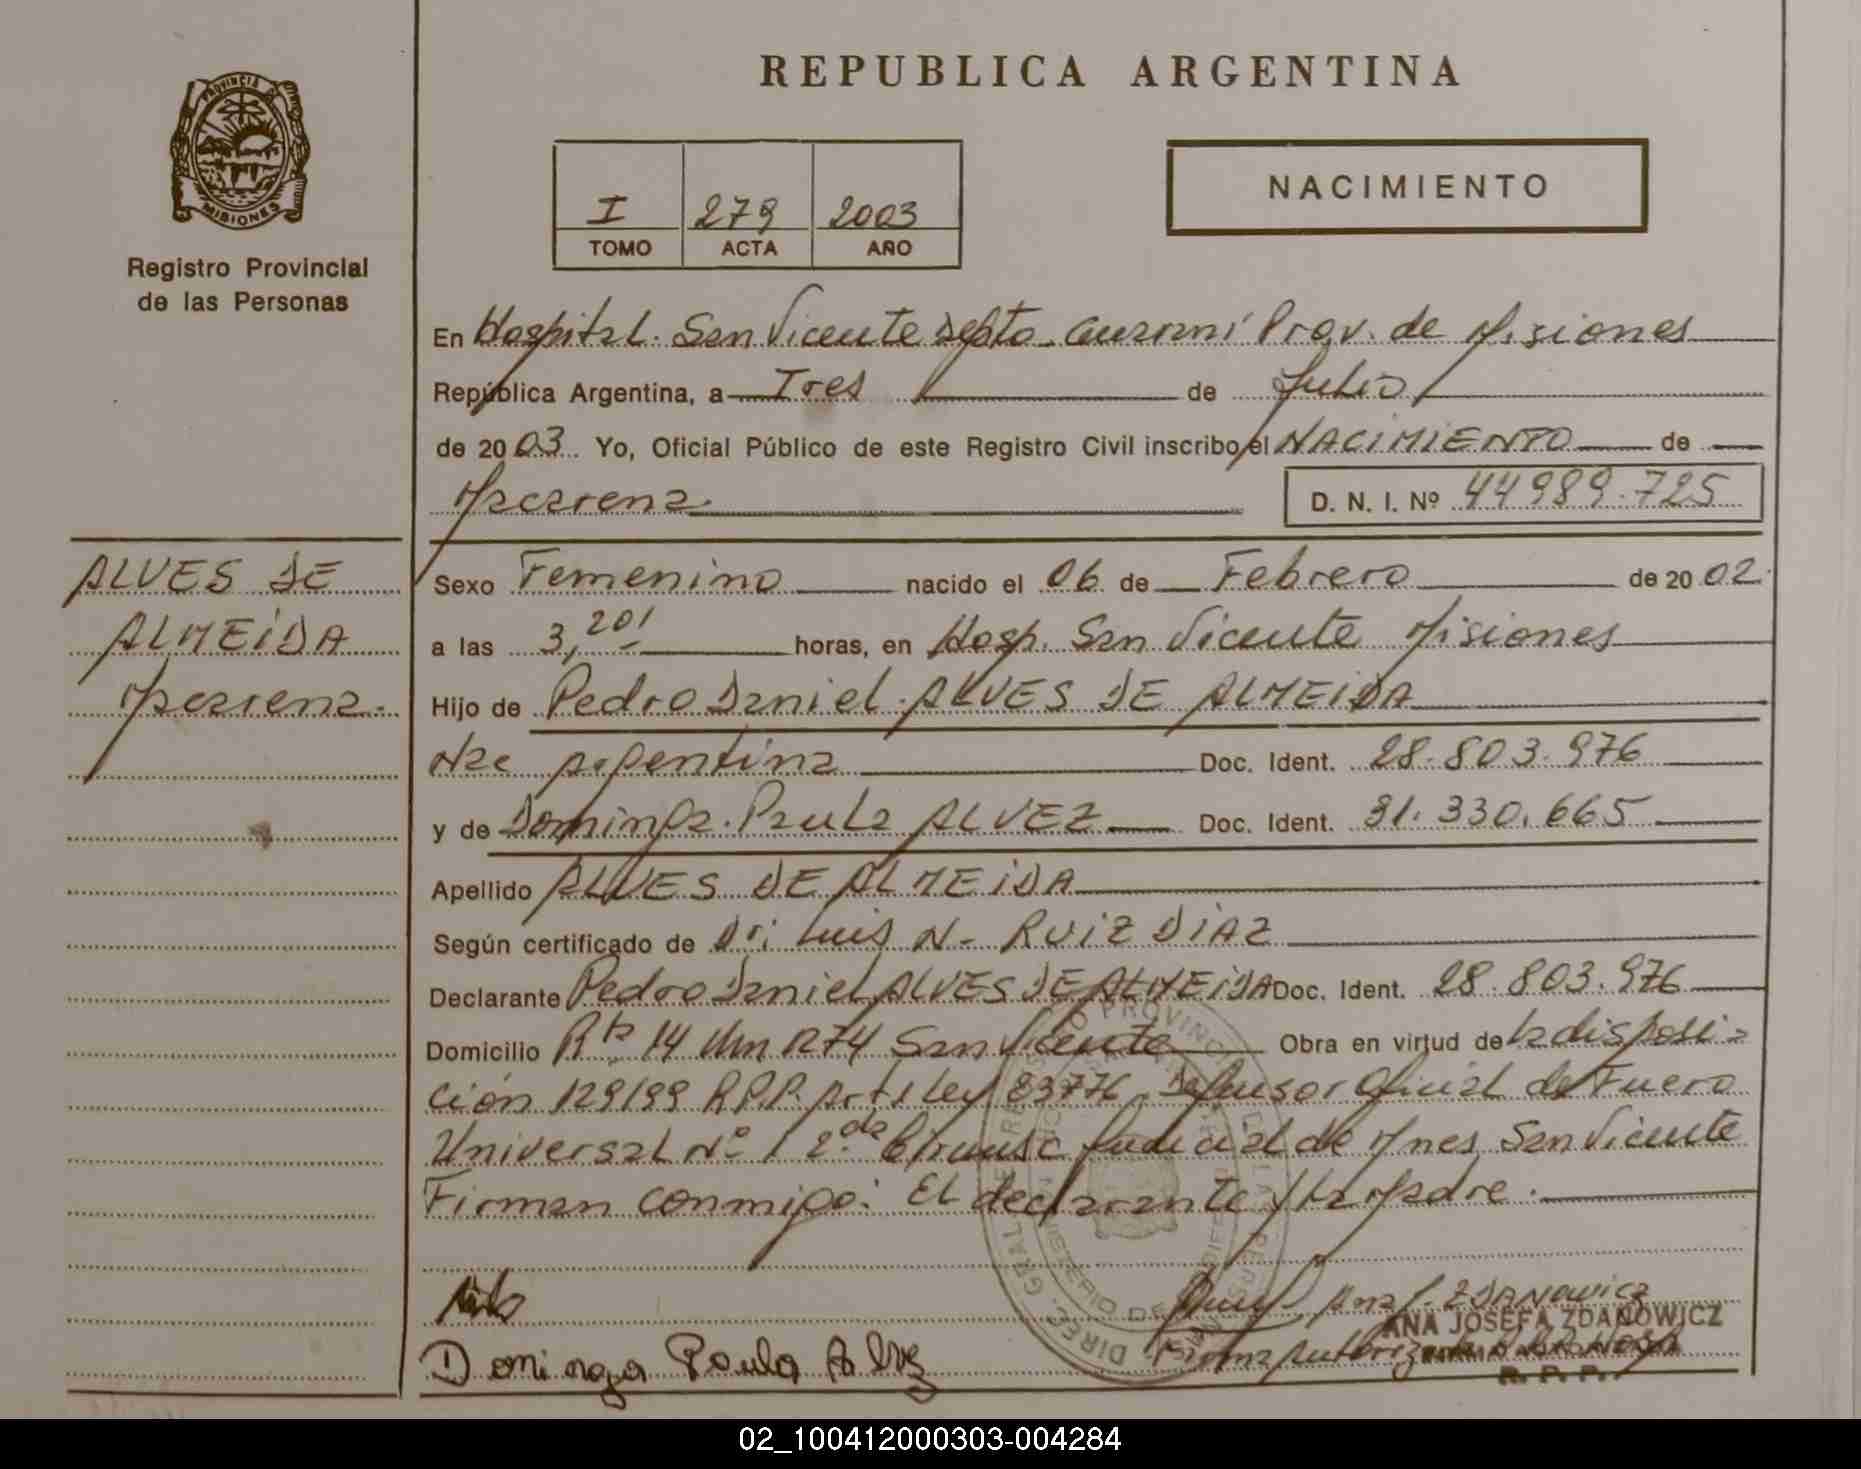 REPUBLICA ARGENTINA
PROVINCIA DE
MISIONES
Registro Provincial
de las Personas
I 279 2003
TOMO ACTA AÑO
NACIMIENTO
En Hospital. San Vicente Depto. Guaraní Prov. de Misiones
República Argentina, a Tres de Julio
de 2003. Yo, Oficial Público de este Registro Civil inscribo el NACIMIENTO de
Macarena
D. N. I. Nº 44989.725
ALVES DE
ALMEIDA
Macarena.
Sexo Femenino nacido el 06 de Febrero de 20 02.
a las 3,20' horas, en Hosp. San Vicente Misiones
Hijo de Pedro Daniel ALVES DE ALMEIDA
Nac Argentina Doc. Ident. 28.803.976
y de Dominga. Paula ALVEZ Doc. Ident. 31.330.665
Apellido ALVES DE ALMEIDA
Según certificado de Dr: Luis N. RUIZ DIAZ
Declarante Pedro Daniel ALVES DE ALMEIDA Doc. Ident. 28.803.976
Domicilio Rta 14 Km 1274 San Vicente Obra en virtud de la disposi=
ción 129/99 R.P.P. Art 1 Ley 23776, Defensor Oficial de Fuero
Universal Nº 1 2da Circunsc Judicial de Mnes San Vicente
Firman conmigo: El declarante y la Madre.
Ana J. ZDANOWICZ
ANA JOSEFA ZDANOWICZ
Firma Autorizada
R. P. P.
Dominga Paula Alvez
02_100412000303-004284